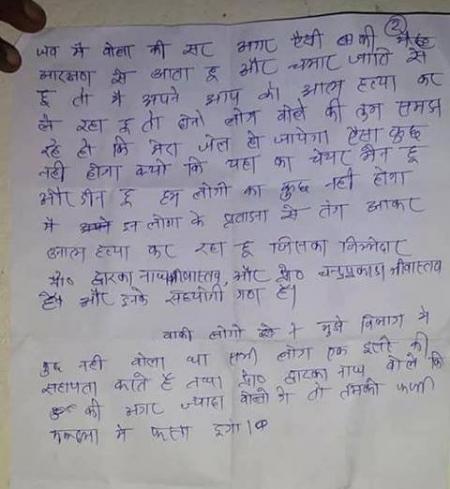 (2)
जब मै बोला की सर अगर ऐसी की मै
आरक्षण से आता हू और चमार जाति से
हू तो मै अपने आप को आत्म हत्या कर
ले रहा हू तो दोनो लोग बोले की तुम समझ
रहे हो कि मेरा जेल हो जायेगा ऐसा कुछ
नही होगा क्यो कि यहा का चेयर मैन हू
और डीन हू हम लोगो का कुछ नही होगा
मै इन लोगो के प्रताडना से तंग आकर
आत्म हत्या कर रहा हू जिसका जिम्मेदार
प्रो० द्वारका नाथ श्रीवास्तव, और प्रो० चन्द्रप्रकाश श्रीवास्तव
है। और इनके सहयोगी गण है।
बाकी लोगो मुझे विभाग मे
कुछ नही बोला था सभी लोग एक दूसरे की
सहायता करते है तथा प्रो० द्वारका नाथ बोले कि
की अगर ज्यादा बोलोगे तो तुमको फर्जी
मे फसा दूगा।